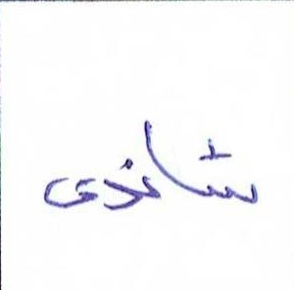 شاذى